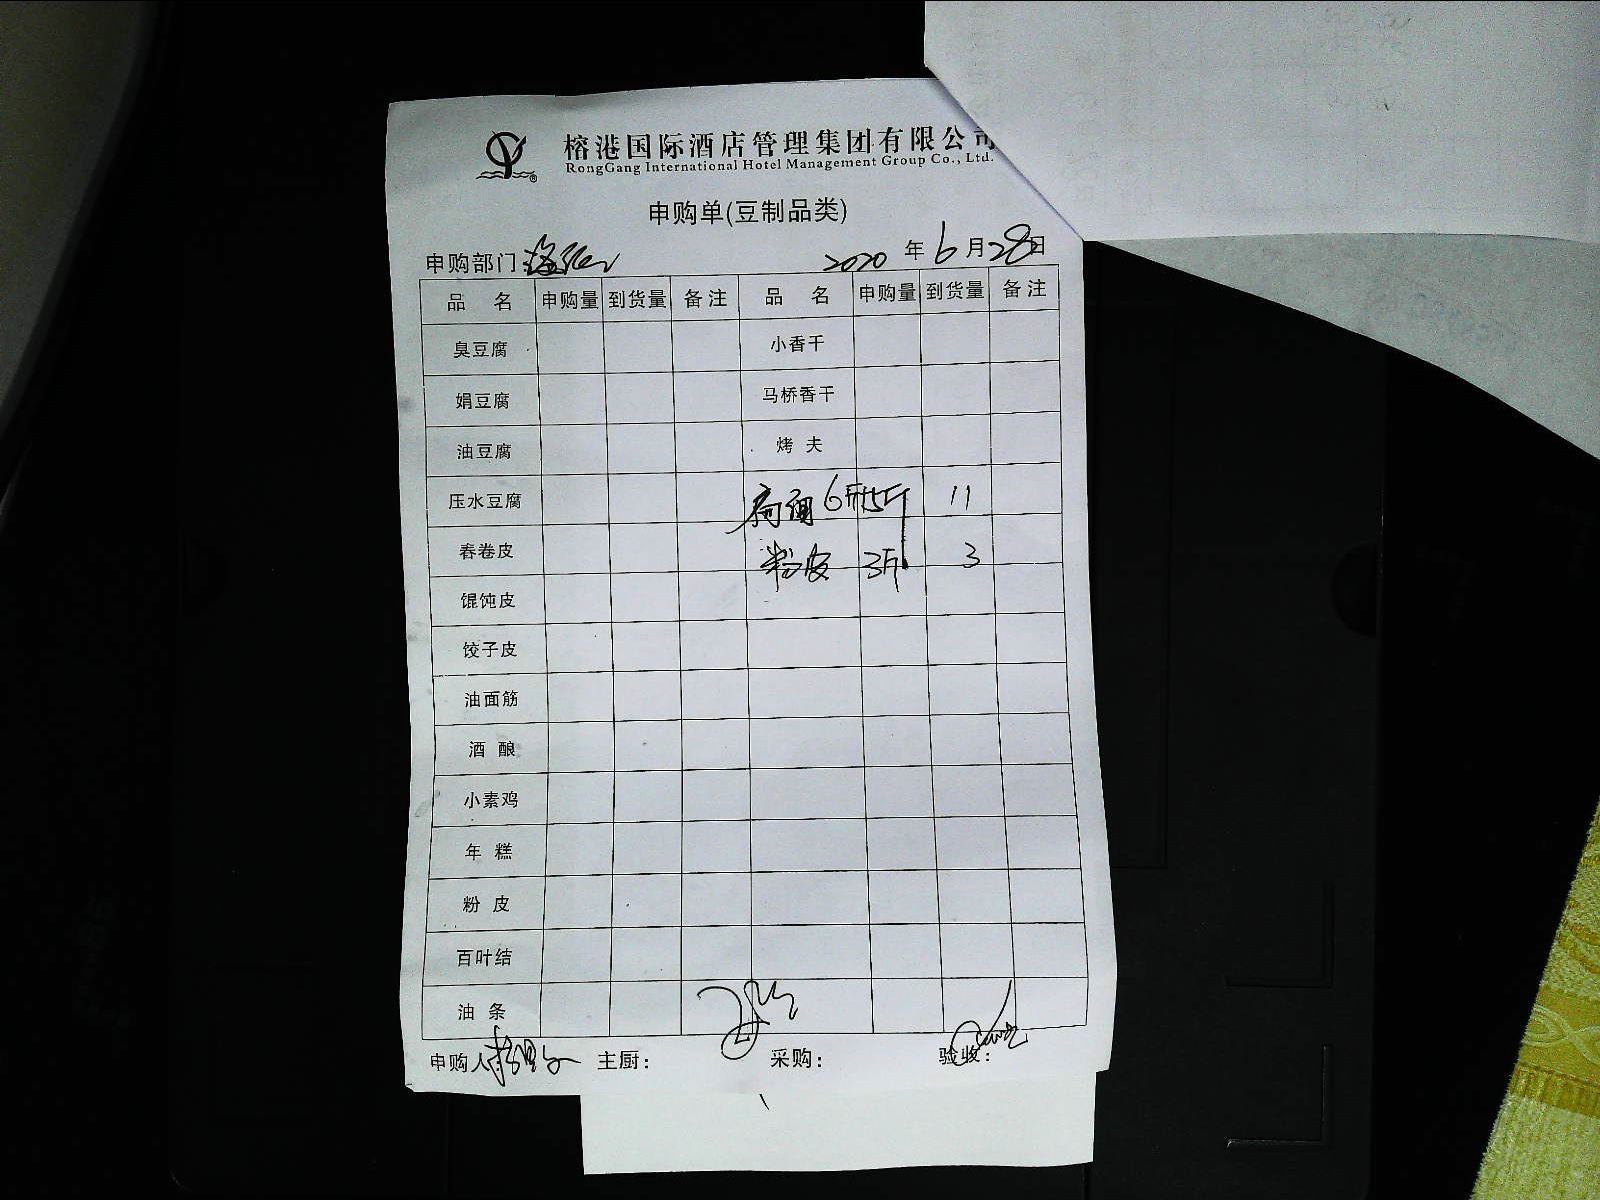 榕港国际酒店管理集团有限公司
RongGang International Hotel Management Group Co., Ltd.
申购单(豆制品类)
申购部门 2020 年 6 月 28 日
品 名 申购量 到货量 备注 品 名 申购量 到货量 备注
臭豆腐 小香干
娟豆腐 马桥香干
油豆腐 烤 夫
压水豆腐 11
春卷皮 粉皮 3斤 3
馄饨皮
饺子皮
油面筋
酒 酿
小素鸡
年 糕
粉 皮
百叶结
油 条
申购人 主厨： 采购： 验收：